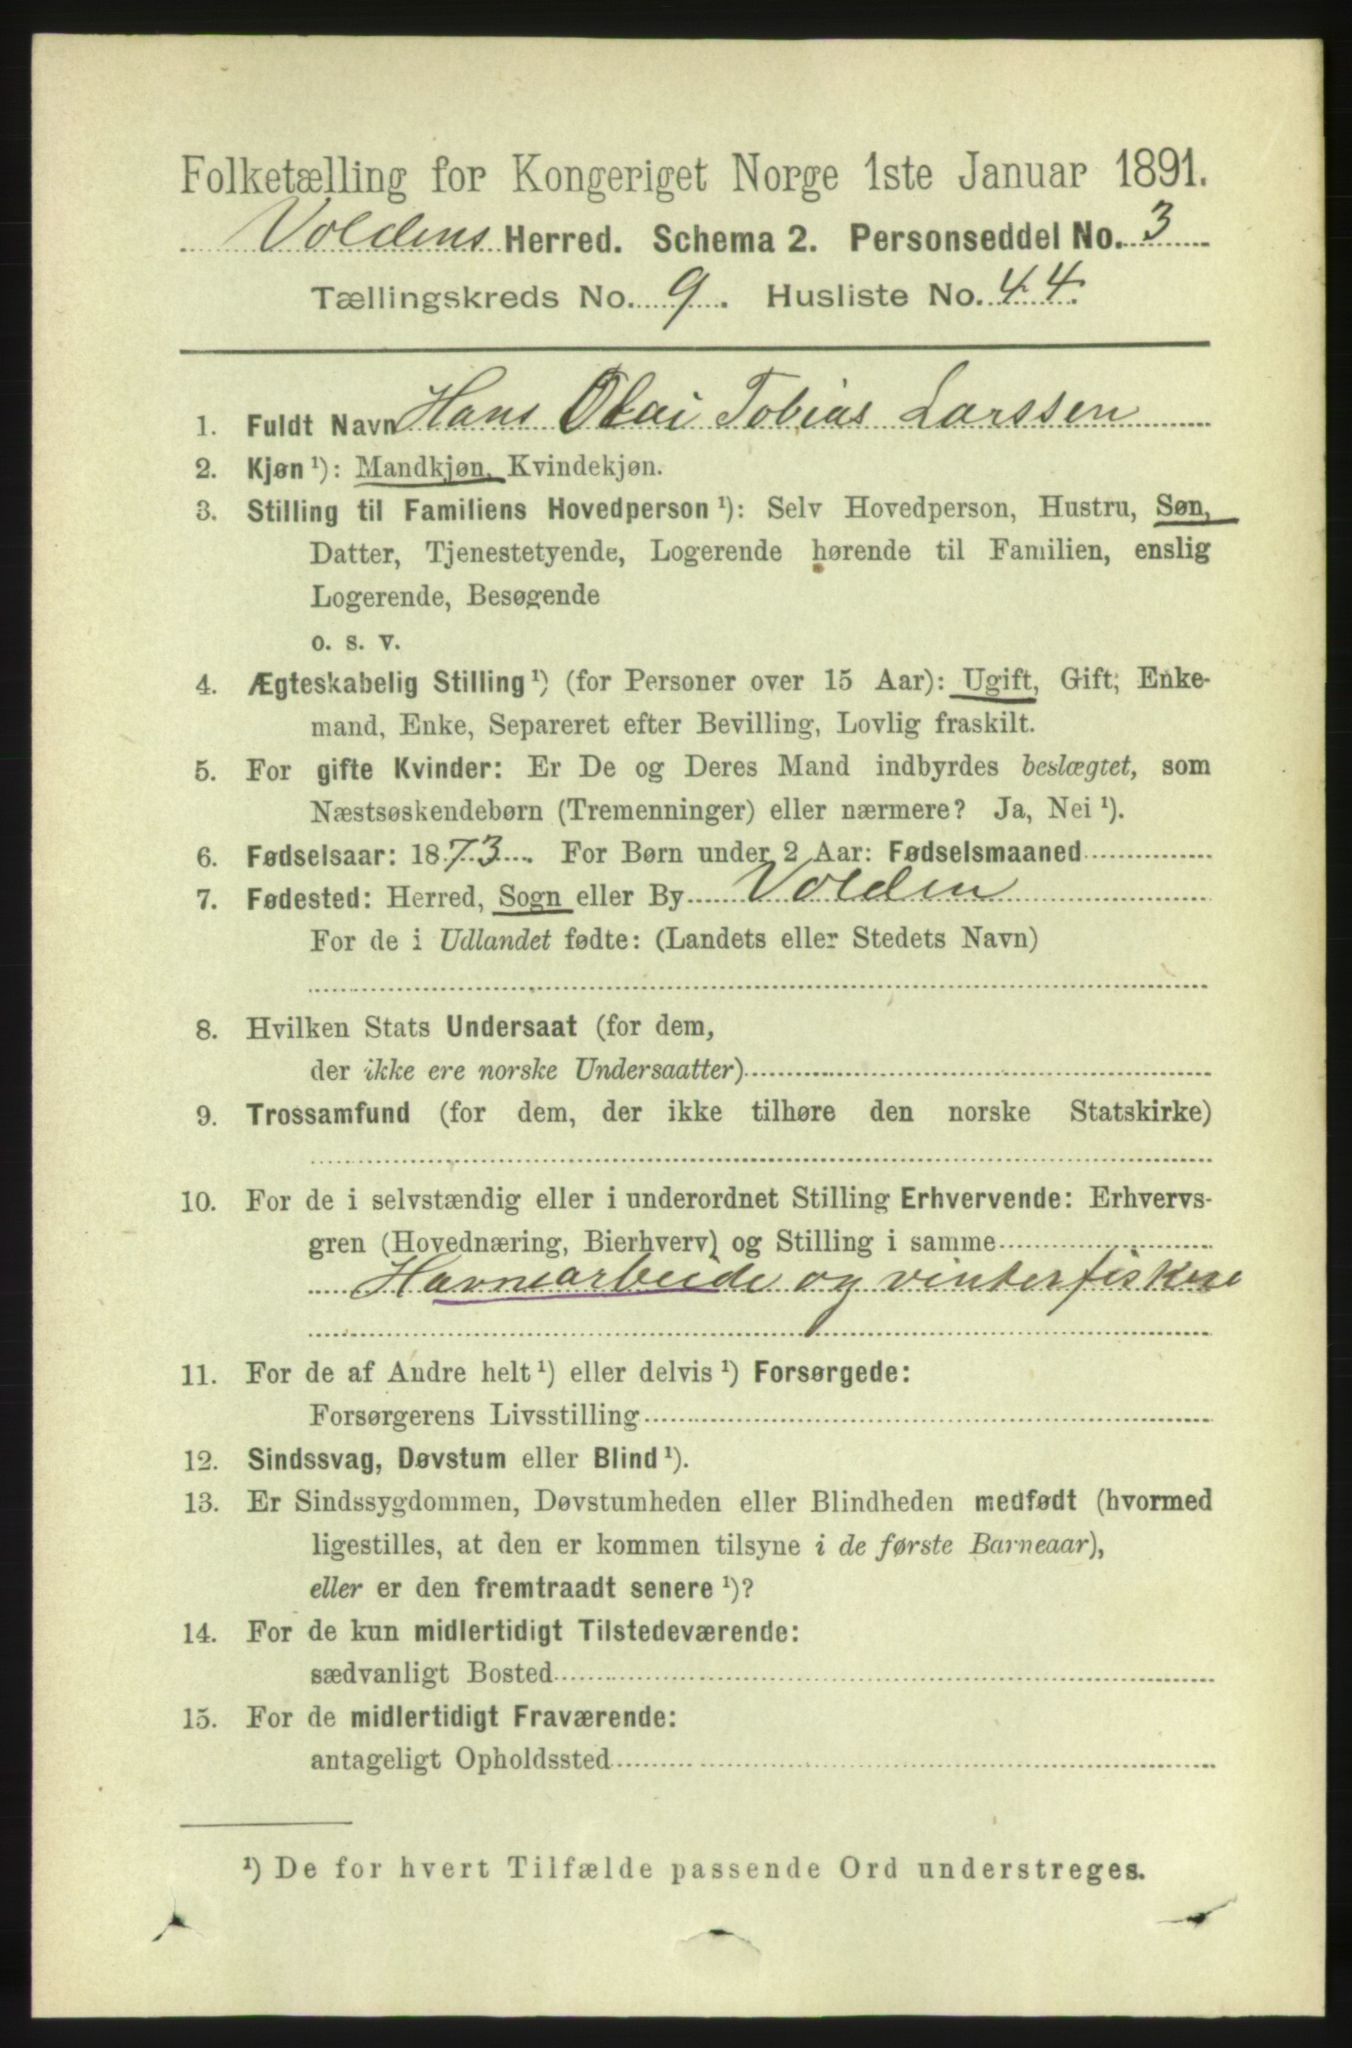 Folketælling for Kongeriget Norge 1ste Januar 1891.
Voldens Herred. Schema 2. Personseddel No. 3
Tællingskreds No. 9. Husliste No. 44.
1. Fuldt Navn Hans Olai Tobias Larssen
2. Kjøn ¹): Mandkjøn, Kvindekjøn.
3. Stilling til Familiens Hovedperson ¹): Selv Hovedperson, Hustru, Søn,
Datter, Tjenestetyende, Logerende hørende til Familien, enslig
Logerende, Besøgende
o. s. v.
4. Ægteskabelig Stilling ¹) (for Personer over 15 Aar): Ugift, Gift, Enke-
mand, Enke, Separeret efter Bevilling, Lovlig fraskilt.
5. For gifte Kvinder: Er De og Deres Mand indbyrdes beslægtet, som
Næstsøskendebørn (Tremenninger) eller nærmere? Ja, Nei ¹).
6. Fødselsaar: 1873. For Børn under 2 Aar: Fødselsmaaned
7. Fødested: Herred, Sogn eller By Volden
For de i Udlandet fødte: (Landets eller Stedets Navn)
8. Hvilken Stats Undersaat (for dem,
der ikke ere norske Undersaatter)
9. Trossamfund (for dem, der ikke tilhøre den norske Statskirke)
10. For de i selvstændig eller i underordnet Stilling Erhvervende: Erhvervs-
gren (Hovednæring, Bierhverv) og Stilling i samme
Havnearbeide og vinterfiskere
11. For de af Andre helt ¹) eller delvis ¹) Forsørgede:
Forsørgerens Livsstilling
12. Sindssvag, Døvstum eller Blind ¹).
13. Er Sindssygdommen, Døvstumheden eller Blindheden medfødt (hvormed
ligestilles, at den er kommen tilsyne i de første Barneaar),
eller er den fremtraadt senere ¹)?
14. For de kun midlertidigt Tilstedeværende:
sædvanligt Bosted
15. For de midlertidigt Fraværende:
antageligt Opholdssted
¹) De for hvert Tilfælde passende Ord understreges.